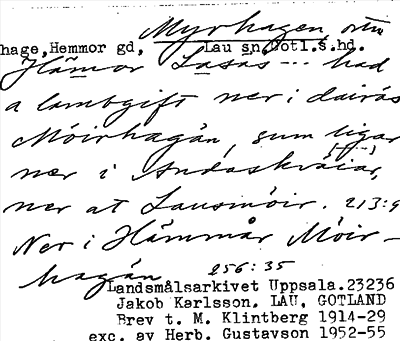 Myrhagen, östra
hage, Hemmor gd, Lau sn, Gotl.s.hd.
Hämor Lasas --- had
a lambgift ner i dairäs
Móirhagån, sum ligar
ner i Andaskräiar,
ner at Lausmóir. 213:9
Ner i Hämmår Móir-
hagån 256:35
Landsmålsarkivet Uppsala.23236
Jakob Karlsson, LAU, GOTLAND
Brev t. M. Klintberg 1914-29
exc. av Herb. Gustavson 1952-55